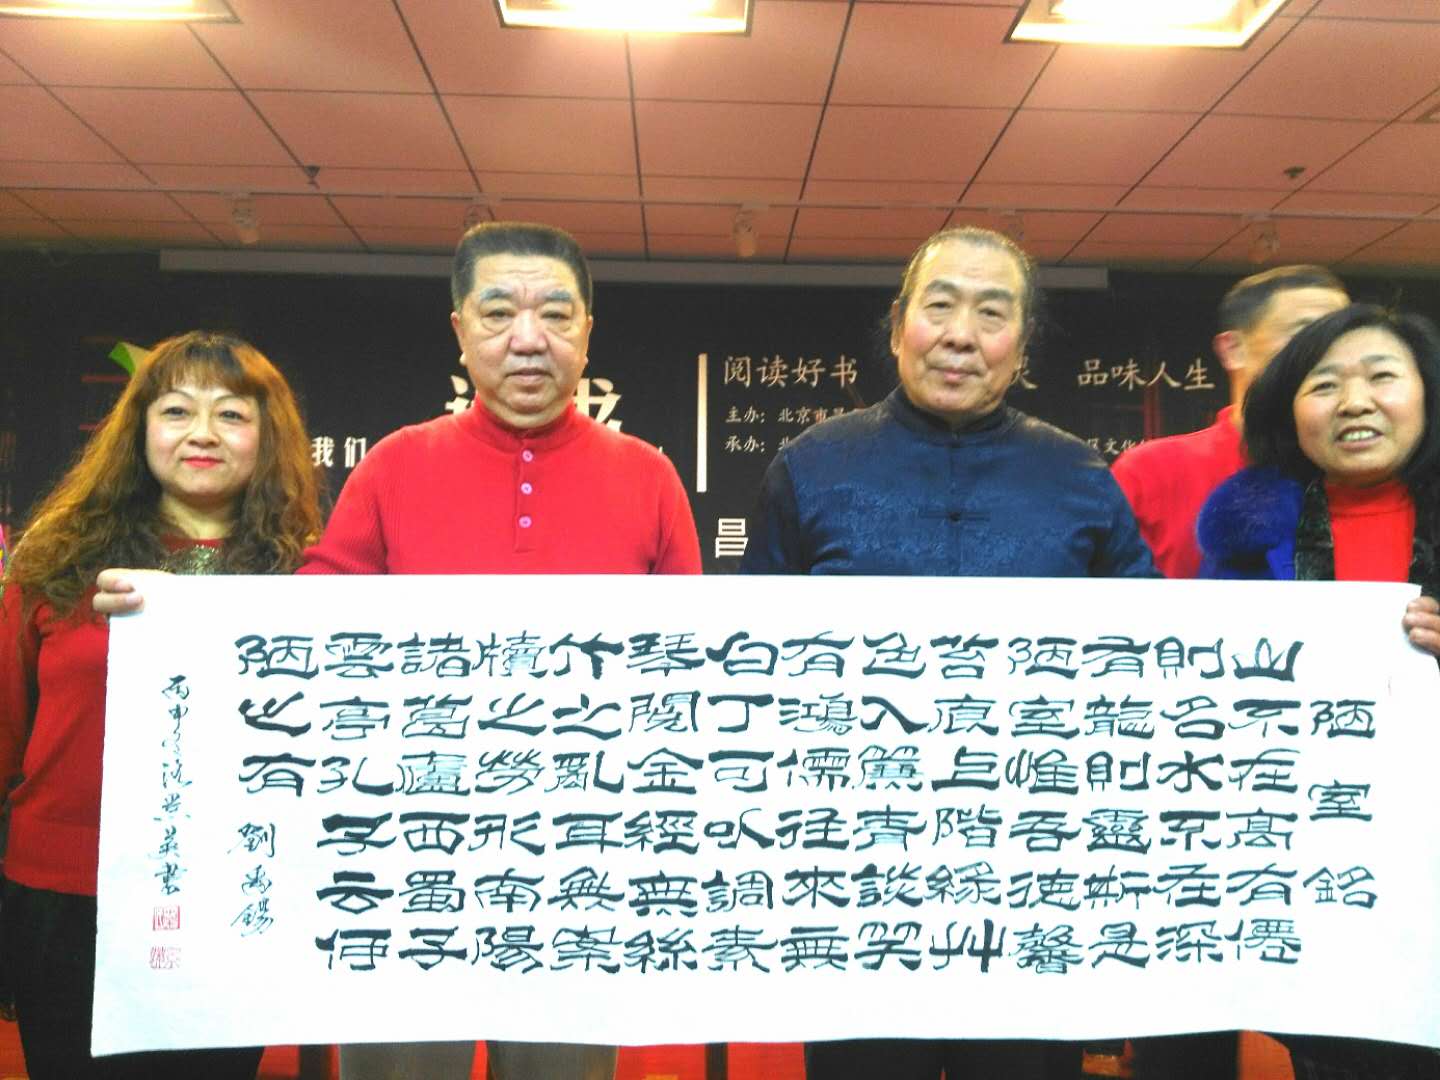 阅读好书 品味人生
主办：北京市
承办：北 区文化
我们
昌
陋室銘
山不在高有僊
則名水不在深
有龍則靈斯是
陋室惟吾德馨
苔痕上階緑艸
色入簾青談笑
有鴻儒往來無
白丁可以調素
琴閱金經無絲
竹之亂耳無案
牘之勞形南陽
諸葛廬西蜀子
雲亭孔子云何
陋之有
劉禹錫
丙申 英書